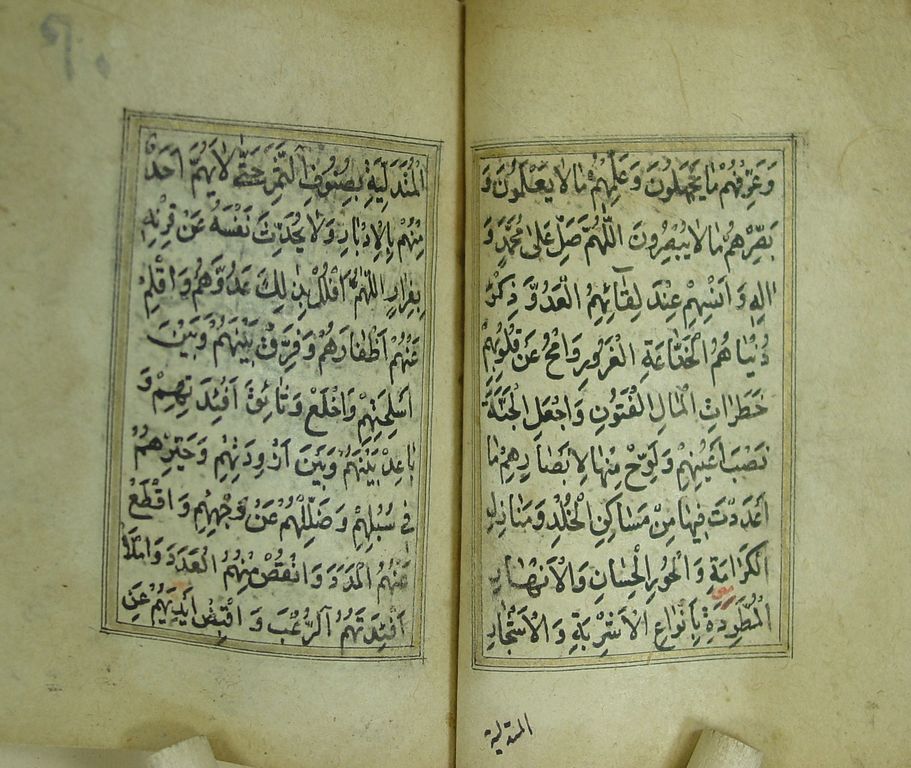 وَعَرِّفْهُمْ مَا يَجْهَلُونَ وَعَلِّمْهُمْ مَا لَا يَعْلَمُونَ وَ
بَصِّرْهُمْ مَا لَا يُبْصِرُونَ اَللّٰهُمَّ صَلِّ عَلٰى مُحَمَّدٍ وَ
اٰلِهِ وَ اَنْسِهِمْ عِنْدَ لِقَآئِهِمُ الْعَدُوَّ ذِكْرَ
دُنْيَا هُمُ الْخَدَّاعَةِ الْغَرُورِ وَامْحُ عَنْ قُلُوبِهِمْ
خَطَرَاتِ الْمَالِ الْفَتُونِ وَاجْعَلِ الْجَنَّةَ
نَصْبَ اَعْيُنِهِمْ وَلَوِّحْ مِنْهَا لِاَبْصَارِهِمْ مَا
اَعْدَدْتَ فِيهَا مِنْ مَسَاكِنِ الْخُلْدِ وَمَنَازِلِ
الْكَرَامَةِ وَالْحُورِ الْحِسَانِ وَالْاَنْهَارِ
الْمُطَّرِدَةِ بِاَنْوَاعِ الْاَشْرِبَةِ وَالْاَشْجَارِ
المتدلية
الْمُتَدَلِّيَةِ بِصُنُوفِ الثَّمَرِ حَتّٰى لَا يَهُمَّ اَحَدٌ
مِنْهُمْ بِالْاِدْبَارِ وَلَا يُحَدِّثَ نَفْسَهُ عَنْ قِرْنِهِ
بِفِرَارٍ اَللّٰهُمَّ افْلُلْ بِذٰلِكَ عَدُوَّهُمْ وَاقْلِمْ
عَنْهُمْ اَظْفَارَهُمْ وَفَرِّقْ بَيْنَهُمْ وَبَيْنَ
اَسْلِحَتِهِمْ وَاخْلَعْ وَثَائِقَ اَفْئِدَتِهِمْ وَ
بَاعِدْ بَيْنَهُمْ وَبَيْنَ اَزْوِدَتِهِمْ وَحَيِّرْهُمْ
فِى سُبُلِهِمْ وَضَلِّلْهُمْ عَنْ وَجْهِهِمْ وَاقْطَعْ
عَنْهُمُ الْمَدَدَ وَانْقُصْ مِنْهُمُ الْعَدَدَ وَامْلَأْ
اَفْئِدَتَهُمُ الرُّعْبَ وَ اقْبِضْ اَيْدِيَهُمْ عَنِ